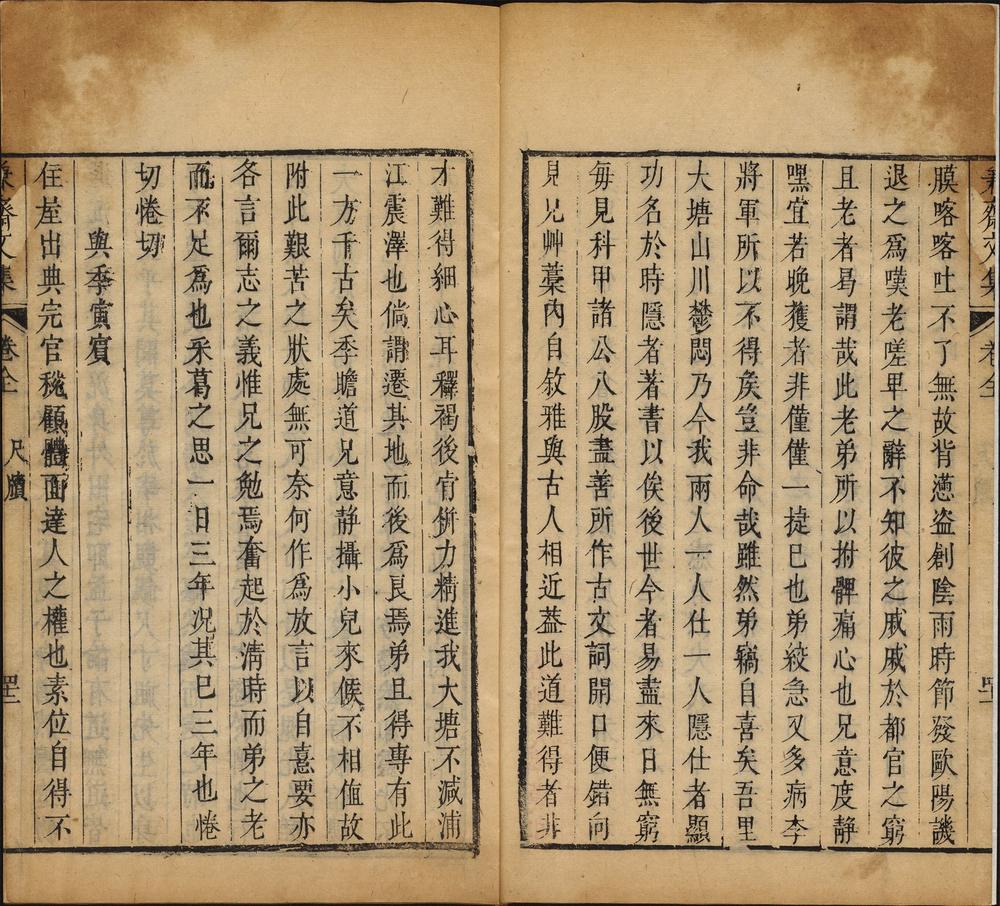 膜喀喀吐不了無故背懣盗創陰雨時節發歐陽譏
退之爲嘆老嗟卑之辭不知彼之戚戚於都官之窮
且老者曷謂哉此老弟所以拊髀痛心也兄意度靜
嘿宜若晚獲者非僅僅一㨗已也弟絞急又多病李
將軍所以不得矦豈非命哉雖然弟竊自喜矣吾里
大塘山川鬱悶乃今我兩人一人仕一人隱仕者顯
功名於時隱者著書以俟後世今者易盡來日無窮
毎見科甲諸公八股盡善所作古文詞開口便錯向
見兄艸藁內自敘雅與古人相近葢此道難得者非
才難得細心耳釋褐後肯併力精進我大塘不減浦
江震澤也倘謂遷其地而後爲良焉弟且得專有此
一方千古矣季瞻道兄意靜攝小兒來候不相値故
附此艱苦之狀處無可奈何作爲放言以自憙要亦
各言爾志之義惟兄之勉焉奮起於淸時而弟之老
而不足爲也采葛之思一日三年况其已三年也惓
切惓切
與季寅賓
住屋出典完官稅顧體面達人之權也素位自得不
文集
卷全
尺牘